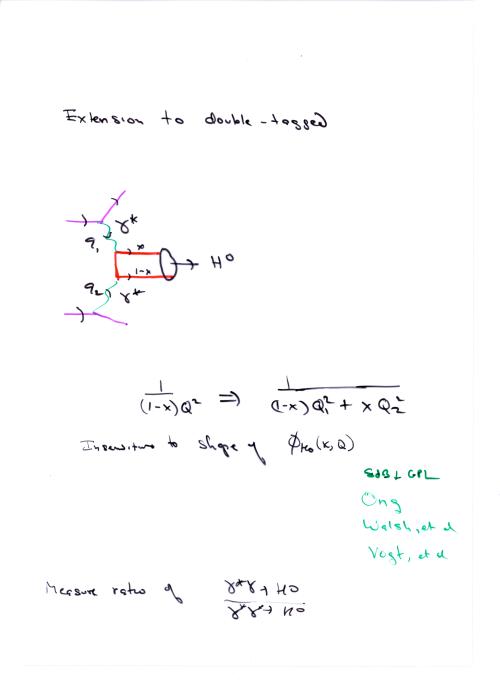 Extension to double-tagged
γ*
q₁ x
→ H⁰
1-x
q₂ γ*
1/((1-x)Q²) ⇒ 1/((1-x)Q₁² + xQ₂²)
Insensitive to shape of ϕ_H₀(x,Q)
SJB & GPL
Ong
Walsh, et al
Vogt, et al
Measure ratio of γ*γ→H⁰ / γ*γ*→H⁰